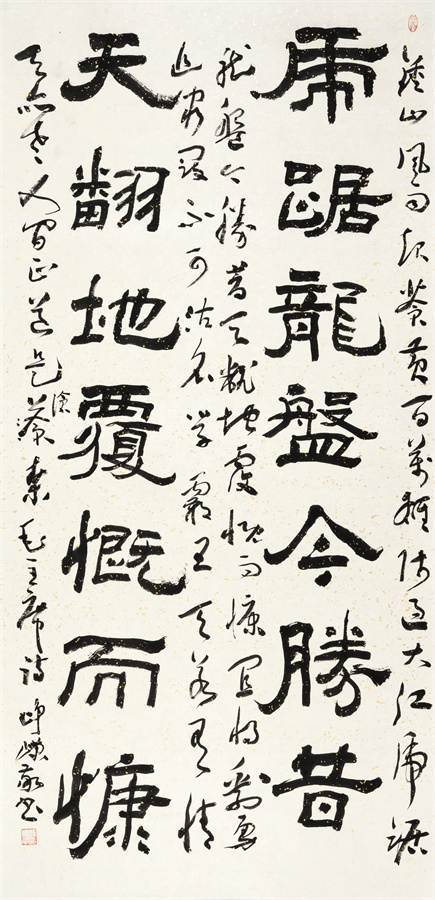 鍾山風雨起蒼黃百萬雄師過大江虎踞
虎踞龍盤今勝昔
龍盤今勝昔天翻地覆慨而慷宜將剩勇
追窮寇不可沽名學霸王天若有情
天翻地覆慨而慷
天亦老人間正道是蒼桑毛主席詩崢嶸書
滄